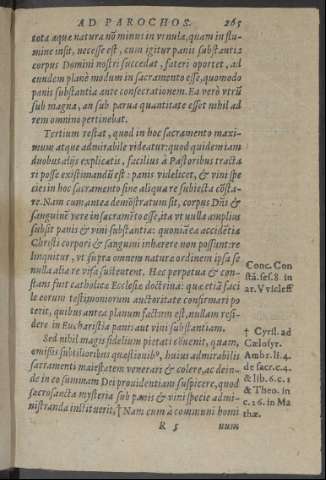 AD PAROCHOS. 265
tota æque natura nō minus in vrnula, quam in flu-
mine insit, necesse est, cum igitur panis substantiæ
corpus Domini nostri succedat, fateri oportet, ad
eundem planè modum in sacramento esse, quomodo
panis substantia ante consecrationem. Ea verò vtrū
sub magna, an sub parua quantitate esset nihil ad
rem omnino pertinebat.
Tertium restat, quod in hoc sacramento maxi-
mum atque admirabile videatur: quod quidem iam
duobus alijs explicatis, facilius à Pastoribus tracta
ri posse existimandū est: panis videlicet, & vini spe
cies in hoc sacramento sine aliqua re subiecta cōsta-
re. Nam cum antea demōstratum sit, corpus Dñi &
sanguinē vere in sacramēto esse, ita vt nulla amplius
subsit panis & vini substantia: quoniā ea accidētia
Christi corpori & sanguini inhærere non possunt: re
linquitur, vt supra omnem naturæ ordinem ipsa se
nulla alia re nisa sustentent. Hæc perpetua & con-
stans fuit catholicæ Ecclesiæ doctrina: quæ etiā faci
le eorum testimoniorum auctoritate confirmari po
terit, quibus antea planum factum est, nullam resi-
dere in Eucharistia panis aut vini substantiam.
Sed nihil magis fidelium pietati cōuenit, quam,
omissis subtilioribus quæstionibꝰ, huius admirabilis
sacramenti maiestatem venerari & colere, ac dein-
de in eo summam Dei prouidentiam suspicere, quod
sacrosancta mysteria sub panis & vini specie admi-
nistranda instituerit, † Nam cum à communi homi
R 5 num
Conc. Con
stā. ses. 8. in
ar. Vvicleff
† Cyril. ad
Cælosyr.
Ambr. li. 4.
de sacr. c. 4.
& lib. 6. c. 1
& Theo. in
c. 26. in Ma
thæ.